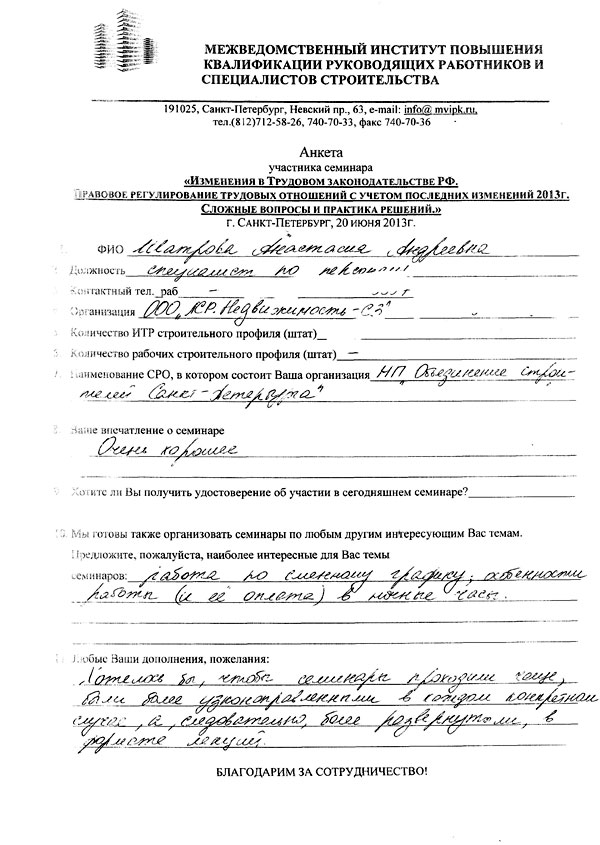 МЕЖВЕДОМСТВЕННЫЙ ИНСТИТУТ ПОВЫШЕНИЯ
КВАЛИФИКАЦИИ РУКОВОДЯЩИХ РАБОТНИКОВ И
СПЕЦИАЛИСТОВ СТРОИТЕЛЬСТВА
191025, Санкт-Петербург, Невский пр., 63, e-mail: info@ mvipk.ru,
тел.(812)712-58-26, 740-70-33, факс 740-70-36
Анкета
участника семинара
«ИЗМЕНЕНИЯ В ТРУДОВОМ ЗАКОНОДАТЕЛЬСТВЕ РФ.
ПРАВОВОЕ РЕГУЛИРОВАНИЕ ТРУДОВЫХ ОТНОШЕНИЙ С УЧЕТОМ ПОСЛЕДНИХ ИЗМЕНЕНИЙ 2013Г.
СЛОЖНЫЕ ВОПРОСЫ И ПРАКТИКА РЕШЕНИЙ.»
Г. САНКТ-ПЕТЕРБУРГ, 20 ИЮНЯ 2013Г.
1. ФИО Шатрова Анастасия Андреевна
2. Должность специалист по
3. Контактный тел. раб –
4. Организация ООО "
Недвижимость-СЗ"
5. Количество ИТР строительного профиля (штат)
6. Количество рабочих строительного профиля (штат) –
7. Наименование СРО, в котором состоит Ваша организация НП "Объединение строи-
телей Санкт-Петербурга"
8. Ваше впечатление о семинаре
Очень хорошее
9. Хотите ли Вы получить удостоверение об участии в сегодняшнем семинаре?
10. Мы готовы также организовать семинары по любым другим интересующим Вас темам.
Предложите, пожалуйста, наиболее интересные для Вас темы
семинаров: работа по сменному графику; особенности
работы (и её оплата) в ночные часы.
11. Любые Ваши дополнения, пожелания:
Хотелось бы, чтобы семинары проходили чаще,
были более узконаправленными в каждом конкретном
случае, а, следовательно, более развернутыми, в
формате лекций.
БЛАГОДАРИМ ЗА СОТРУДНИЧЕСТВО!